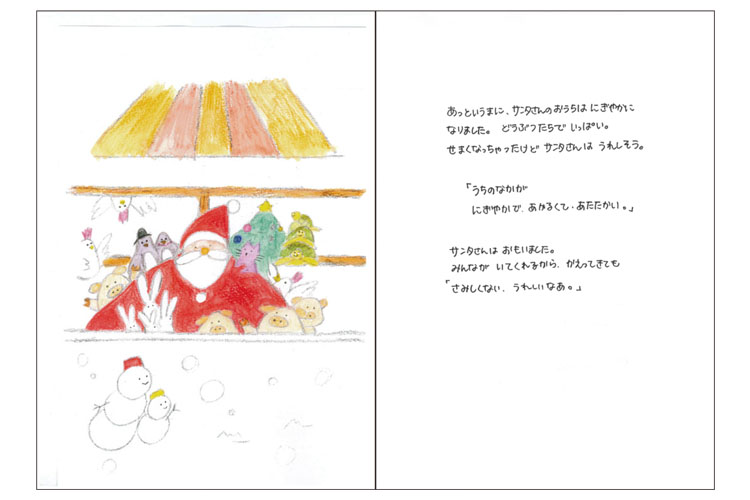 あっというまに、サンタさんのおうちは にぎやかに
なりました。 どうぶつたちで いっぱい。
せまくなっちゃったけど サンタさんは うれしそう。
「うちのなかが
にぎやかで、あかるくて・あたたかい。」
サンタさんは おもいました。
みんなが いてくれるから、かえってきても
「さみしくない、うれしいなあ。」